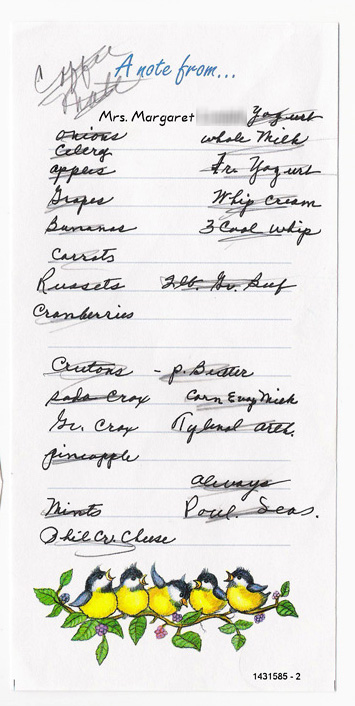 Coffee
mate
A note from...
Mrs. Margaret
Yogurt
onions whole Milk
Celery
apples Fr. Yogurt
Grapes Whip Cream
Bananas 3 Cool Whip
Carrots
Russets 2 lb. Gr. Beef
Cranberries
Crutons - p. Butter
soda Crax Carn Evap Milk
Gr. Crax Tylenol arth.
pineapple
always
Mints Poul. Seas.
Phil Cr. Cheese
1431585 - 2